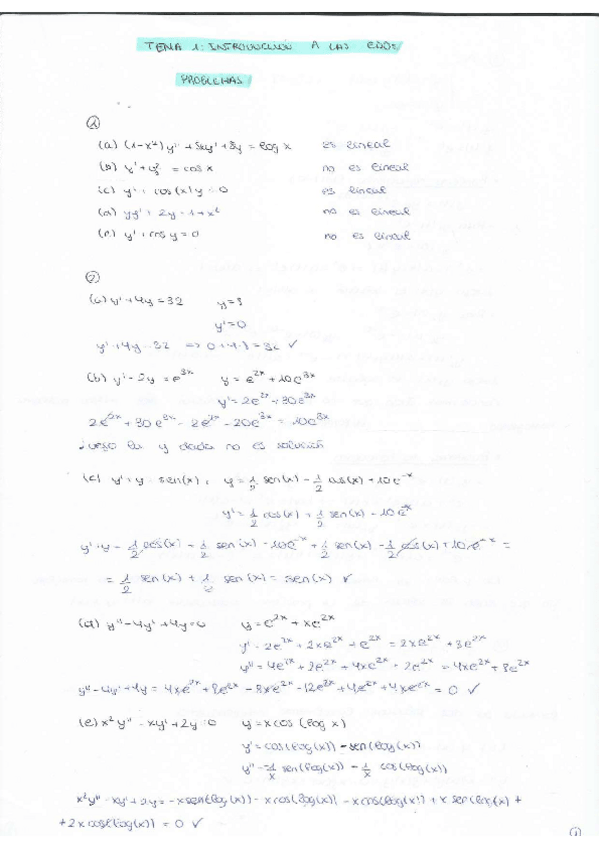 TEMA 1: INTRODUCCIÓN A LAS EDOs
PROBLEMAS
①
(a) (1-x²)y'' + 5xy' + 8y = log x es lineal
(b) y' + y² = cos x no es lineal
(c) y' + cos(x)y = 0 es lineal
(d) yy' + 2y = 1 + x² no es lineal
(e) y' + cos y = 0 no es lineal
②
(a) y' + 4y = 32 y = 8
y' = 0
y' + 4y = 32 => 0 + 4·8 = 32 ✓
(b) y' - 2y = e^{3x} y = e^{2x} + 10e^{3x}
y' = 2e^{2x} + 30e^{3x}
2e^{2x} + 30e^{3x} - 2e^{2x} - 20e^{3x} = 10e^{3x}
luego la y dada no es solución
(c) y' + y = sen(x) y = 1/2 sen(x) - 1/2 cos(x) + 10e^{-x}
y' = 1/2 cos(x) + 1/2 sen(x) - 10e^{-x}
y' + y = 1/2 cos(x) + 1/2 sen(x) - 10e^{-x} + 1/2 sen(x) - 1/2 cos(x) + 10e^{-x} =
= 1/2 sen(x) + 1/2 sen(x) = sen(x) ✓
(d) y'' - 4y' + 4y = 0 y = e^{2x} + xe^{2x}
y' = 2e^{2x} + 2xe^{2x} + e^{2x} = 2xe^{2x} + 3e^{2x}
y'' = 4e^{2x} + 2e^{2x} + 4xe^{2x} + 2e^{2x} = 4xe^{2x} + 8e^{2x}
y'' - 4y' + 4y = 4xe^{2x} + 8e^{2x} - 8xe^{2x} - 12e^{2x} + 4e^{2x} + 4xe^{2x} = 0 ✓
(e) x²y'' - xy' + 2y = 0 y = x cos(log x)
y' = cos(log(x)) - sen(log(x))
y'' = -1/x sen(log(x)) - 1/x cos(log(x))
x²y'' - xy' + 2y = -x sen(log(x)) - x cos(log(x)) - x cos(log(x)) + x sen(log(x)) +
+ 2x cos(log(x)) = 0 ✓
①